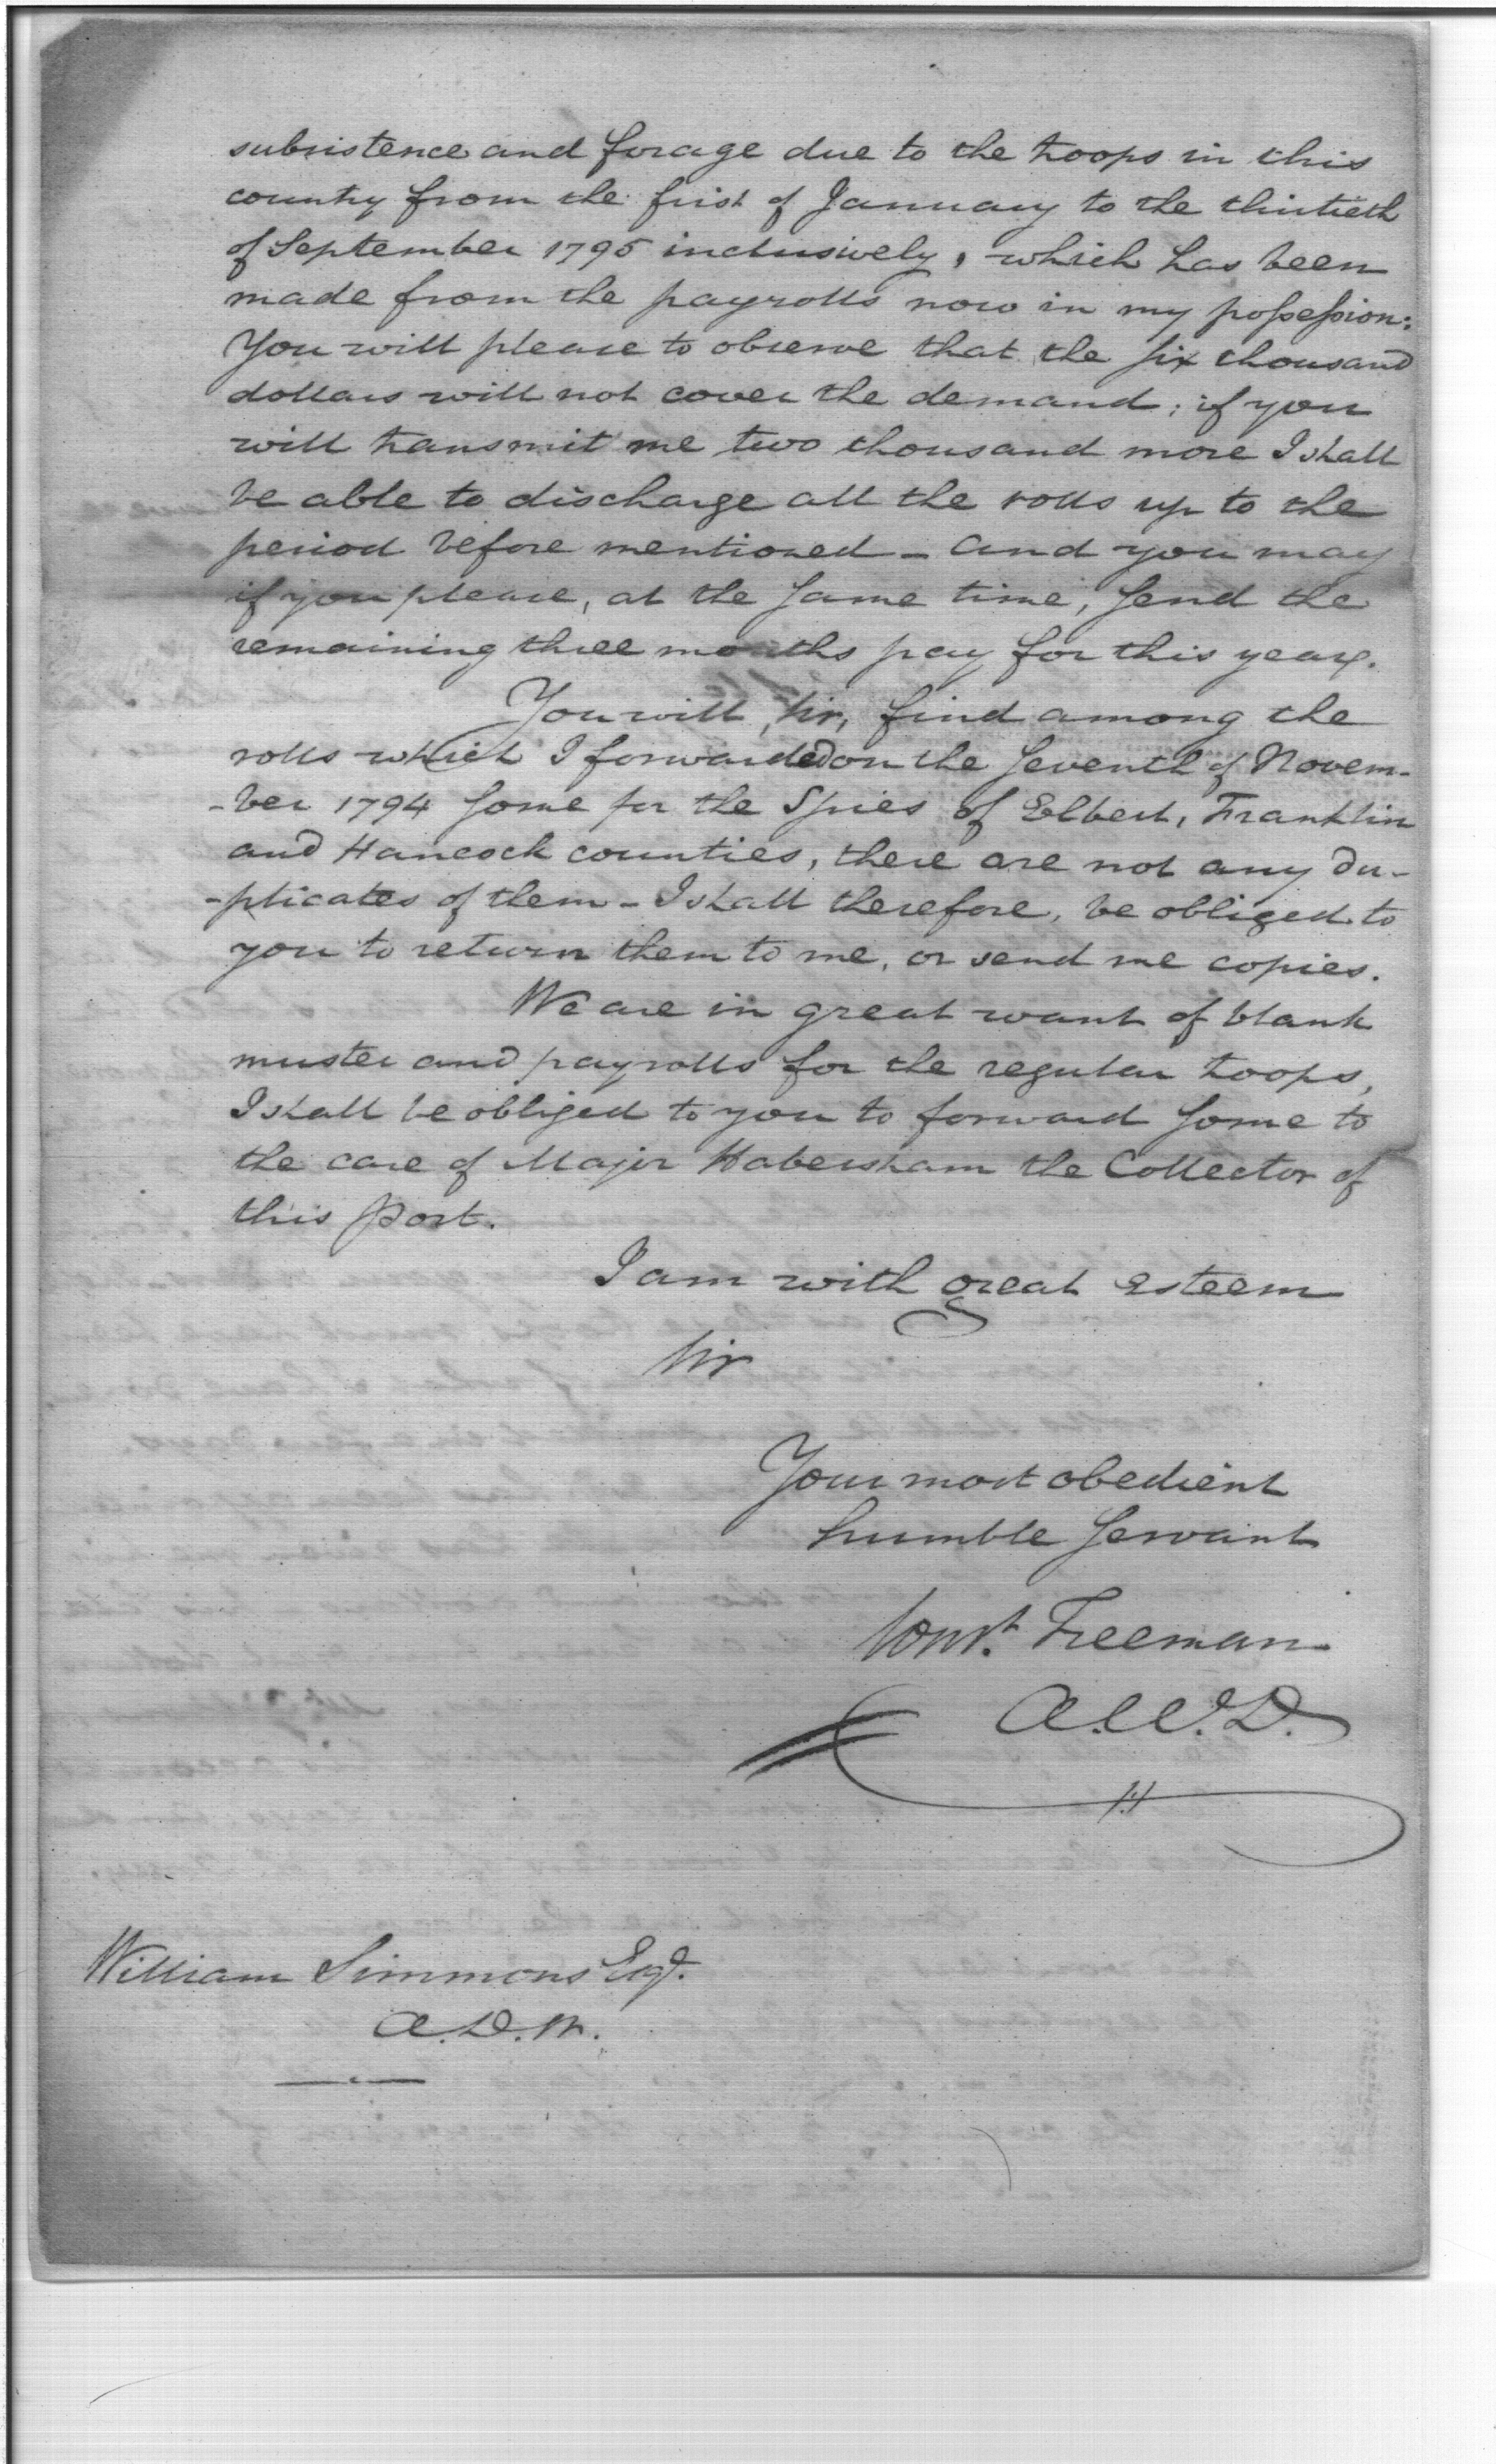 subsistence and forage due to the troops in this
country from the first of January to the thirtieth
of September 1795 inclusively, which has been
made from the payrolls now in my poſseſsion:
You will please to observe that the six thousand
dollars will not cover the demand; if you
will transmit me two thousand more I shall
be able to discharge all the rolls up to the
period before mentioned – and you may
if you please, at the same time, send the
remaining three months pay for this year.
You will, Sir, find among the
rolls which I forwarded on the seventh of Novem-
-ber 1794 some for the Spies of Elbert, Franklin
and Hancock counties, there are not any du-
-plicates of them – I shall therefore, be obliged to
you to return them to me, or send me copies.
We are in great want of blank
muster and payrolls for the regular troops,
I shall be obliged to you to forward some to
the care of Major Habersham the Collector of
this Port.
I am with great esteem
Sir
Your most obedient
humble servant
Const. Freeman
A.W.D.
William Simmons Esqr.
A.D.W.